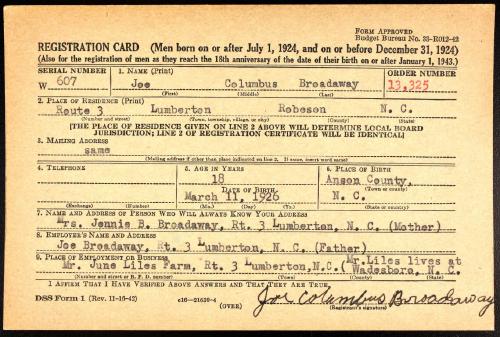 FORM APPROVED
Budget Bureau No. 33-R012-42
REGISTRATION CARD (Men born on or after July 1, 1924, and on or before December 31, 1924)
(Also for the registration of men as they reach the 18th anniversary of the date of their birth on or after January 1, 1943.)
SERIAL NUMBER 1. NAME (Print) ORDER NUMBER
W 607 Joe Columbus Broadaway 13,325
(First) (Middle) (Last)
2. PLACE OF RESIDENCE (Print)
Route 3 Lumberton Robeson N. C.
(Number and street) (Town, township, village, or city) (County) (State)
[THE PLACE OF RESIDENCE GIVEN ON LINE 2 ABOVE WILL DETERMINE LOCAL BOARD
JURISDICTION; LINE 2 OF REGISTRATION CERTIFICATE WILL BE IDENTICAL]
3. MAILING ADDRESS
same
(Mailing address if other than place indicated on line 2. If same, insert word same)
4. TELEPHONE 5. AGE IN YEARS 6. PLACE OF BIRTH
18 Anson County,
DATE OF BIRTH (Town or county)
March 11, 1926 N. C.
(Exchange) (Number) (Mo.) (Day) (Yr.) (State or country)
7. NAME AND ADDRESS OF PERSON WHO WILL ALWAYS KNOW YOUR ADDRESS
Mrs. Jennie B. Broadaway, Rt. 3 Lumberton, N. C. (Mother)
8. EMPLOYER'S NAME AND ADDRESS
Joe Broadaway, Rt. 3 Lumberton, N. C. (Father)
9. PLACE OF EMPLOYMENT OR BUSINESS Mr. Liles lives at
Mr. June Liles Farm, Rt. 3 Lumberton, N.C. ( Wadesboro, N. C.
(Number and street or R. F. D. number) (Town) (County) (State)
I AFFIRM THAT I HAVE VERIFIED ABOVE ANSWERS AND THAT THEY ARE TRUE.
DSS Form 1 (Rev. 11-16-42) c16-21630-4 Joe Columbus Broadaway
(OVER) (Registrant's signature)